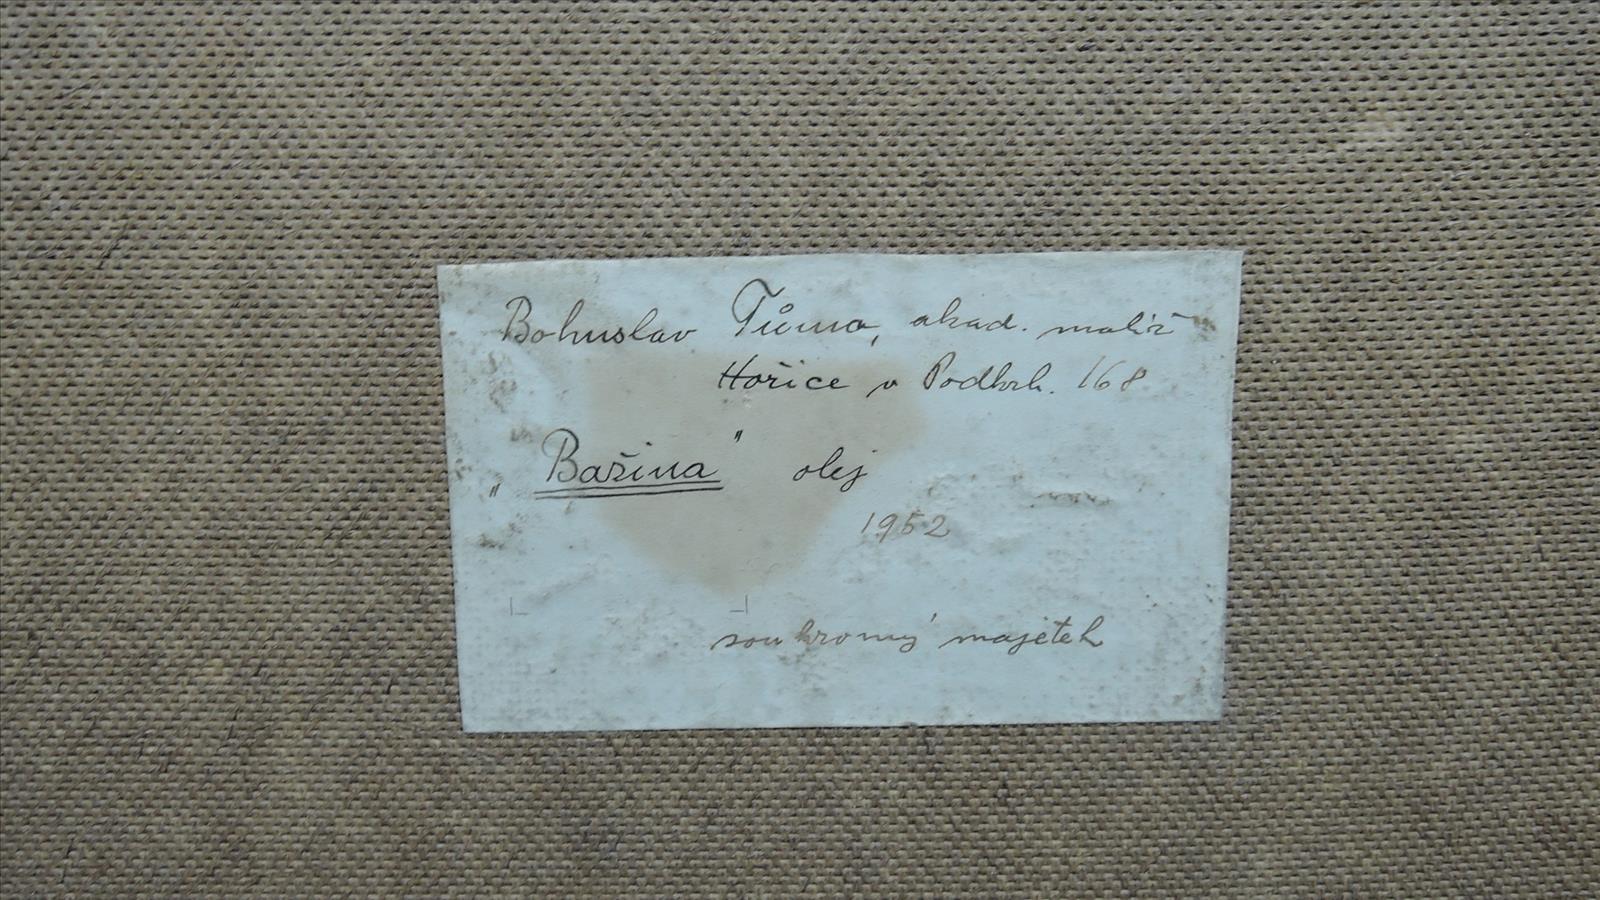 Bohuslav Tůma, akad. malíř
Hořice v Podkrk. 168
„Bažina" olej
1952
soukromý majetek